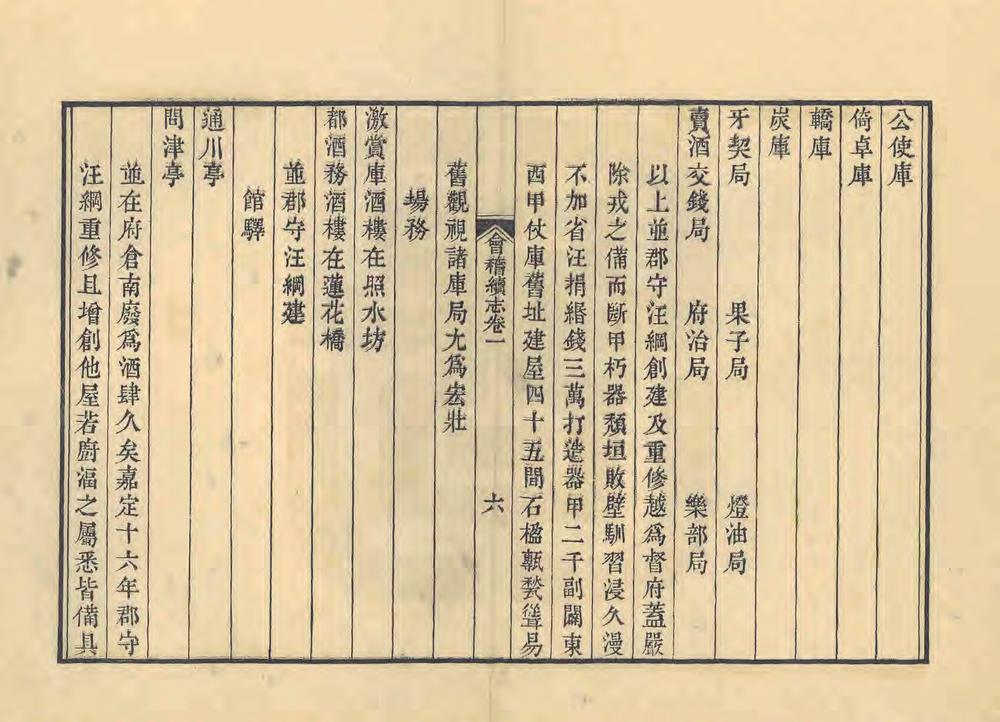 公使庫
倚卓庫
轎庫
炭庫
牙契局　果子局　燈油局
賣酒交錢局　府治局　樂部局
以上並郡守汪綱創建及重修越爲督府蓋嚴
除戎之備而斷甲朽器頹垣敗壁馴習浸久漫
不加省汪捐緡錢三萬打造器甲二千副闢東
西甲仗庫舊址建屋四十五間石楹甎甃聳易
會稽續志卷一　六
舊觀視諸庫局尤爲宏壯
塲務
激賞庫酒樓在照水坊
都酒務酒樓在蓮花橋
並郡守汪綱建
館驛
通川亭
問津亭
並在府倉南廢爲酒肆久矣嘉定十六年郡守
汪綱重修且增創他屋若廚湢之屬悉皆備具